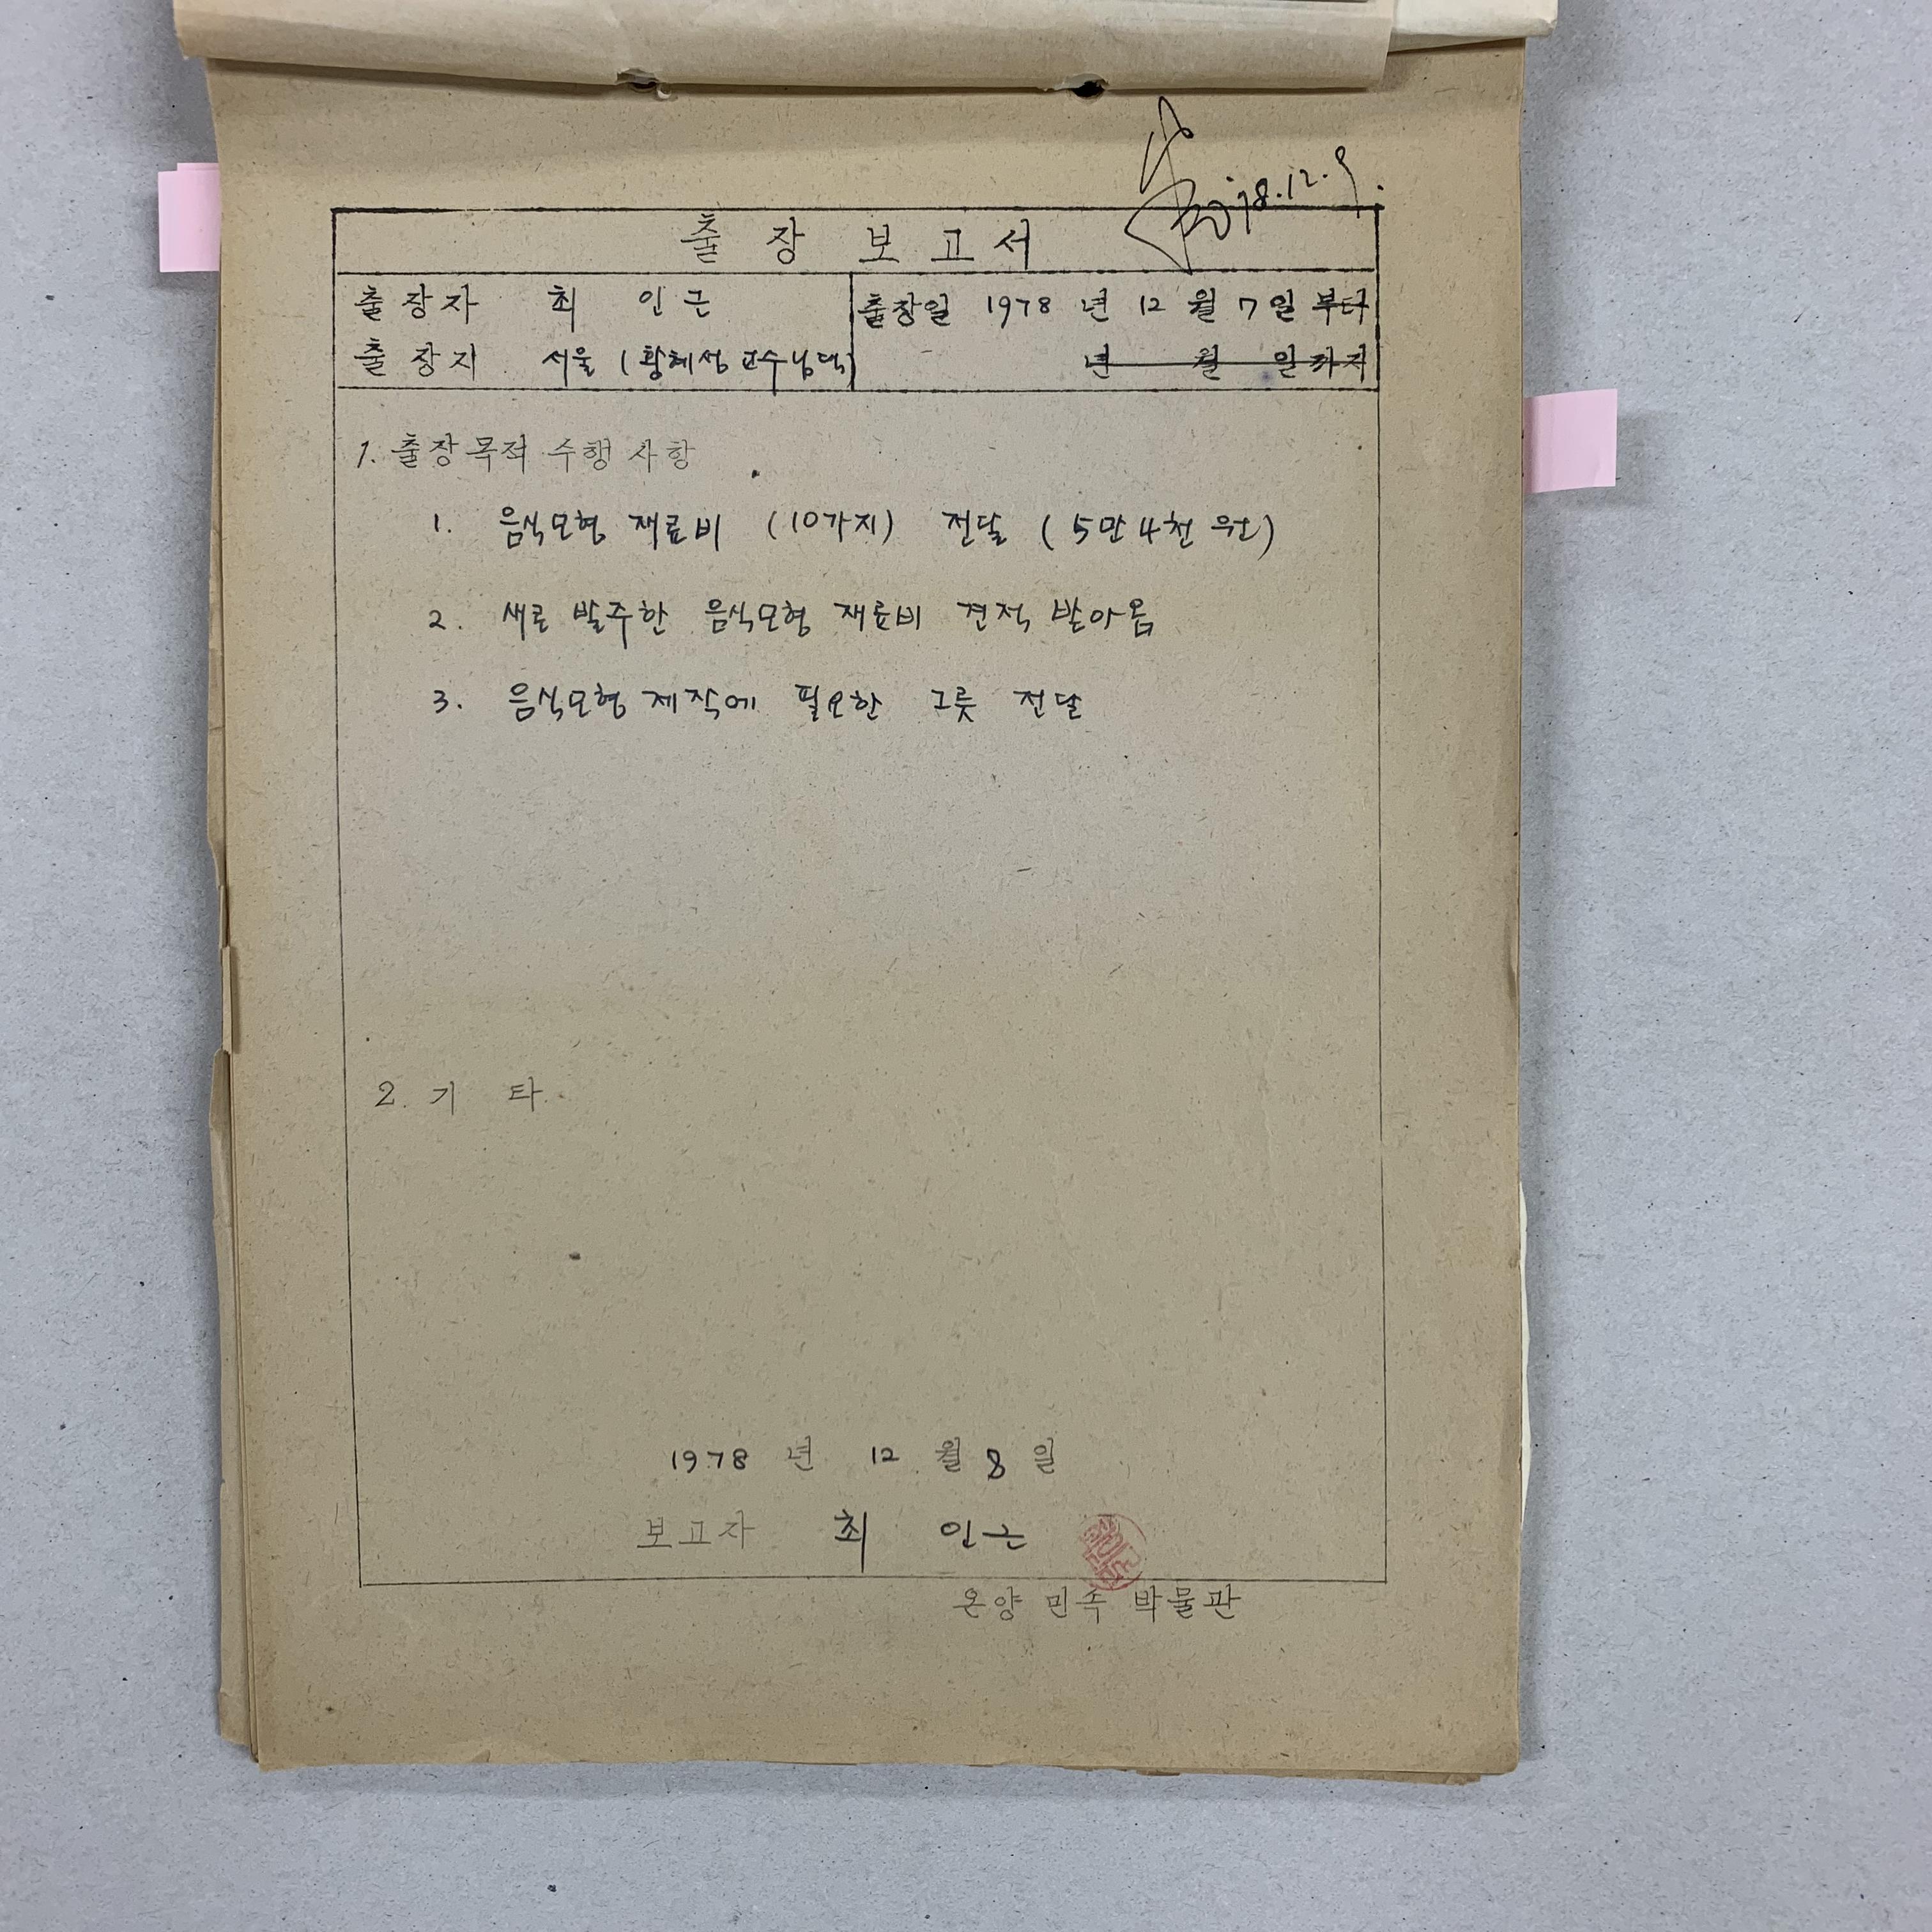 '78.12.9.
출장보고서
출장자 최 인근 출장일 1978 년 12 월 7 일 부터
출장지 서울 (황혜성 교수님댁) 년 월 일 까지
1. 출장목적 수행 사항
1. 음식모형 재료비 (10가지) 전달 (5만4천원)
2. 새로 발주한 음식모형 재료비 견적 받아옴
3. 음식모형 제작에 필요한 그릇 전달
2. 기 타.
1978 년 12 월 8 일
보고자 최 인근
온양 민속 박물관